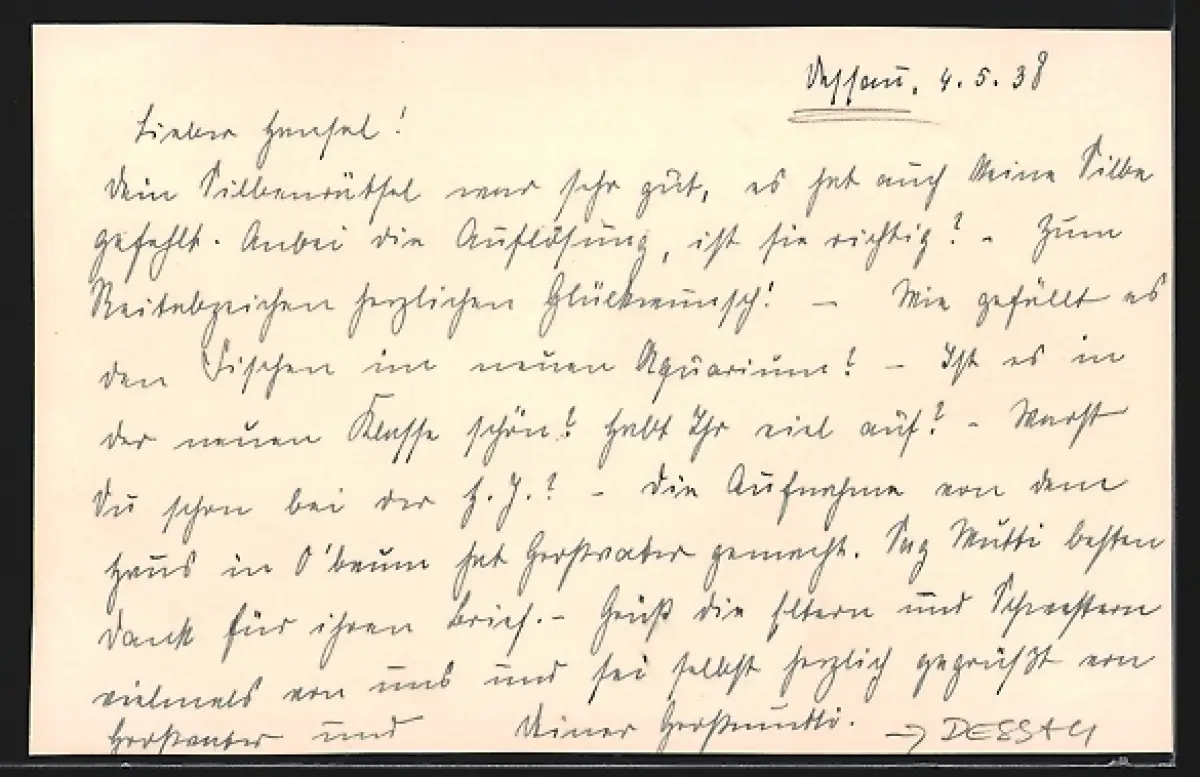 Dessau, 4.5.38
Lieber Hansel!
Dein Silbenrätsel war sehr gut, es hat auch keine Silbe
gefehlt. Anbei die Auflösung, ist sie richtig? - Zum
Reitabzeichen herzlichen Glückwunsch! - Wie gefällt es
den Fischen im neuen Aquarium? - Ist es in
der neuen Klasse schön? Habt Ihr viel auf? - Warst
Du schon bei der H.J.? - Die Aufnahme von dem
Haus in O'baum hat Großvater gemacht. Sag Mutti besten
Dank für ihren Brief. - Grüß die Eltern und Schwestern
vielmals von uns und sei selbst herzlich gegrüßt von
Großvater und Deiner Großmutti.
→ DESSAU